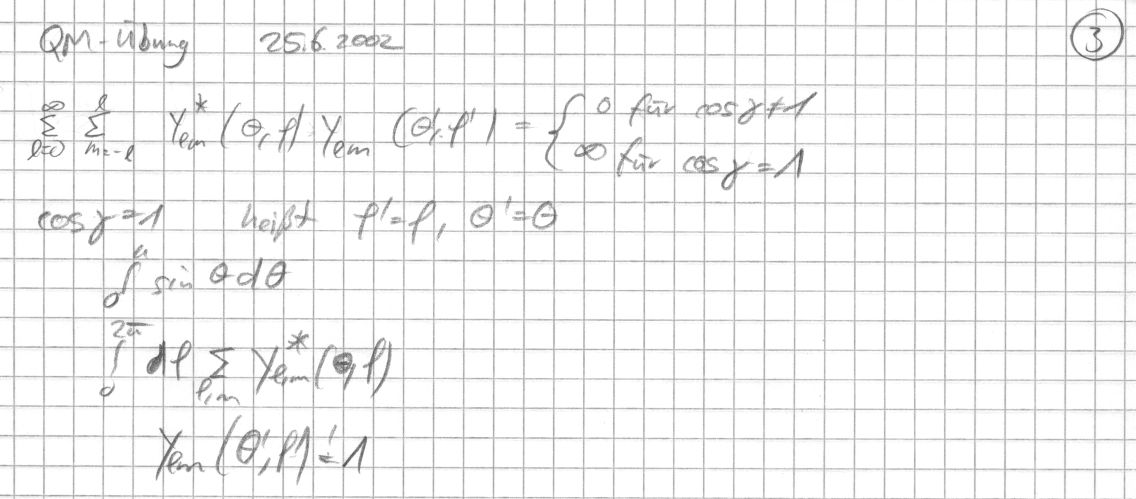 QM-Übung 25.6.2002 ③
∞ ℓ
Σ Σ Y*ℓm (θ,φ) Yℓm (θ',φ') = { 0 für cos γ ≠ 1
ℓ=0 m=-ℓ ∞ für cos γ = 1
cos γ = 1 heißt φ'=φ, θ'=θ
∫₀^π sin θ dθ
∫₀^2π dφ Σℓ,m Y*ℓm (θ,φ)
Yℓm (θ',φ') != 1